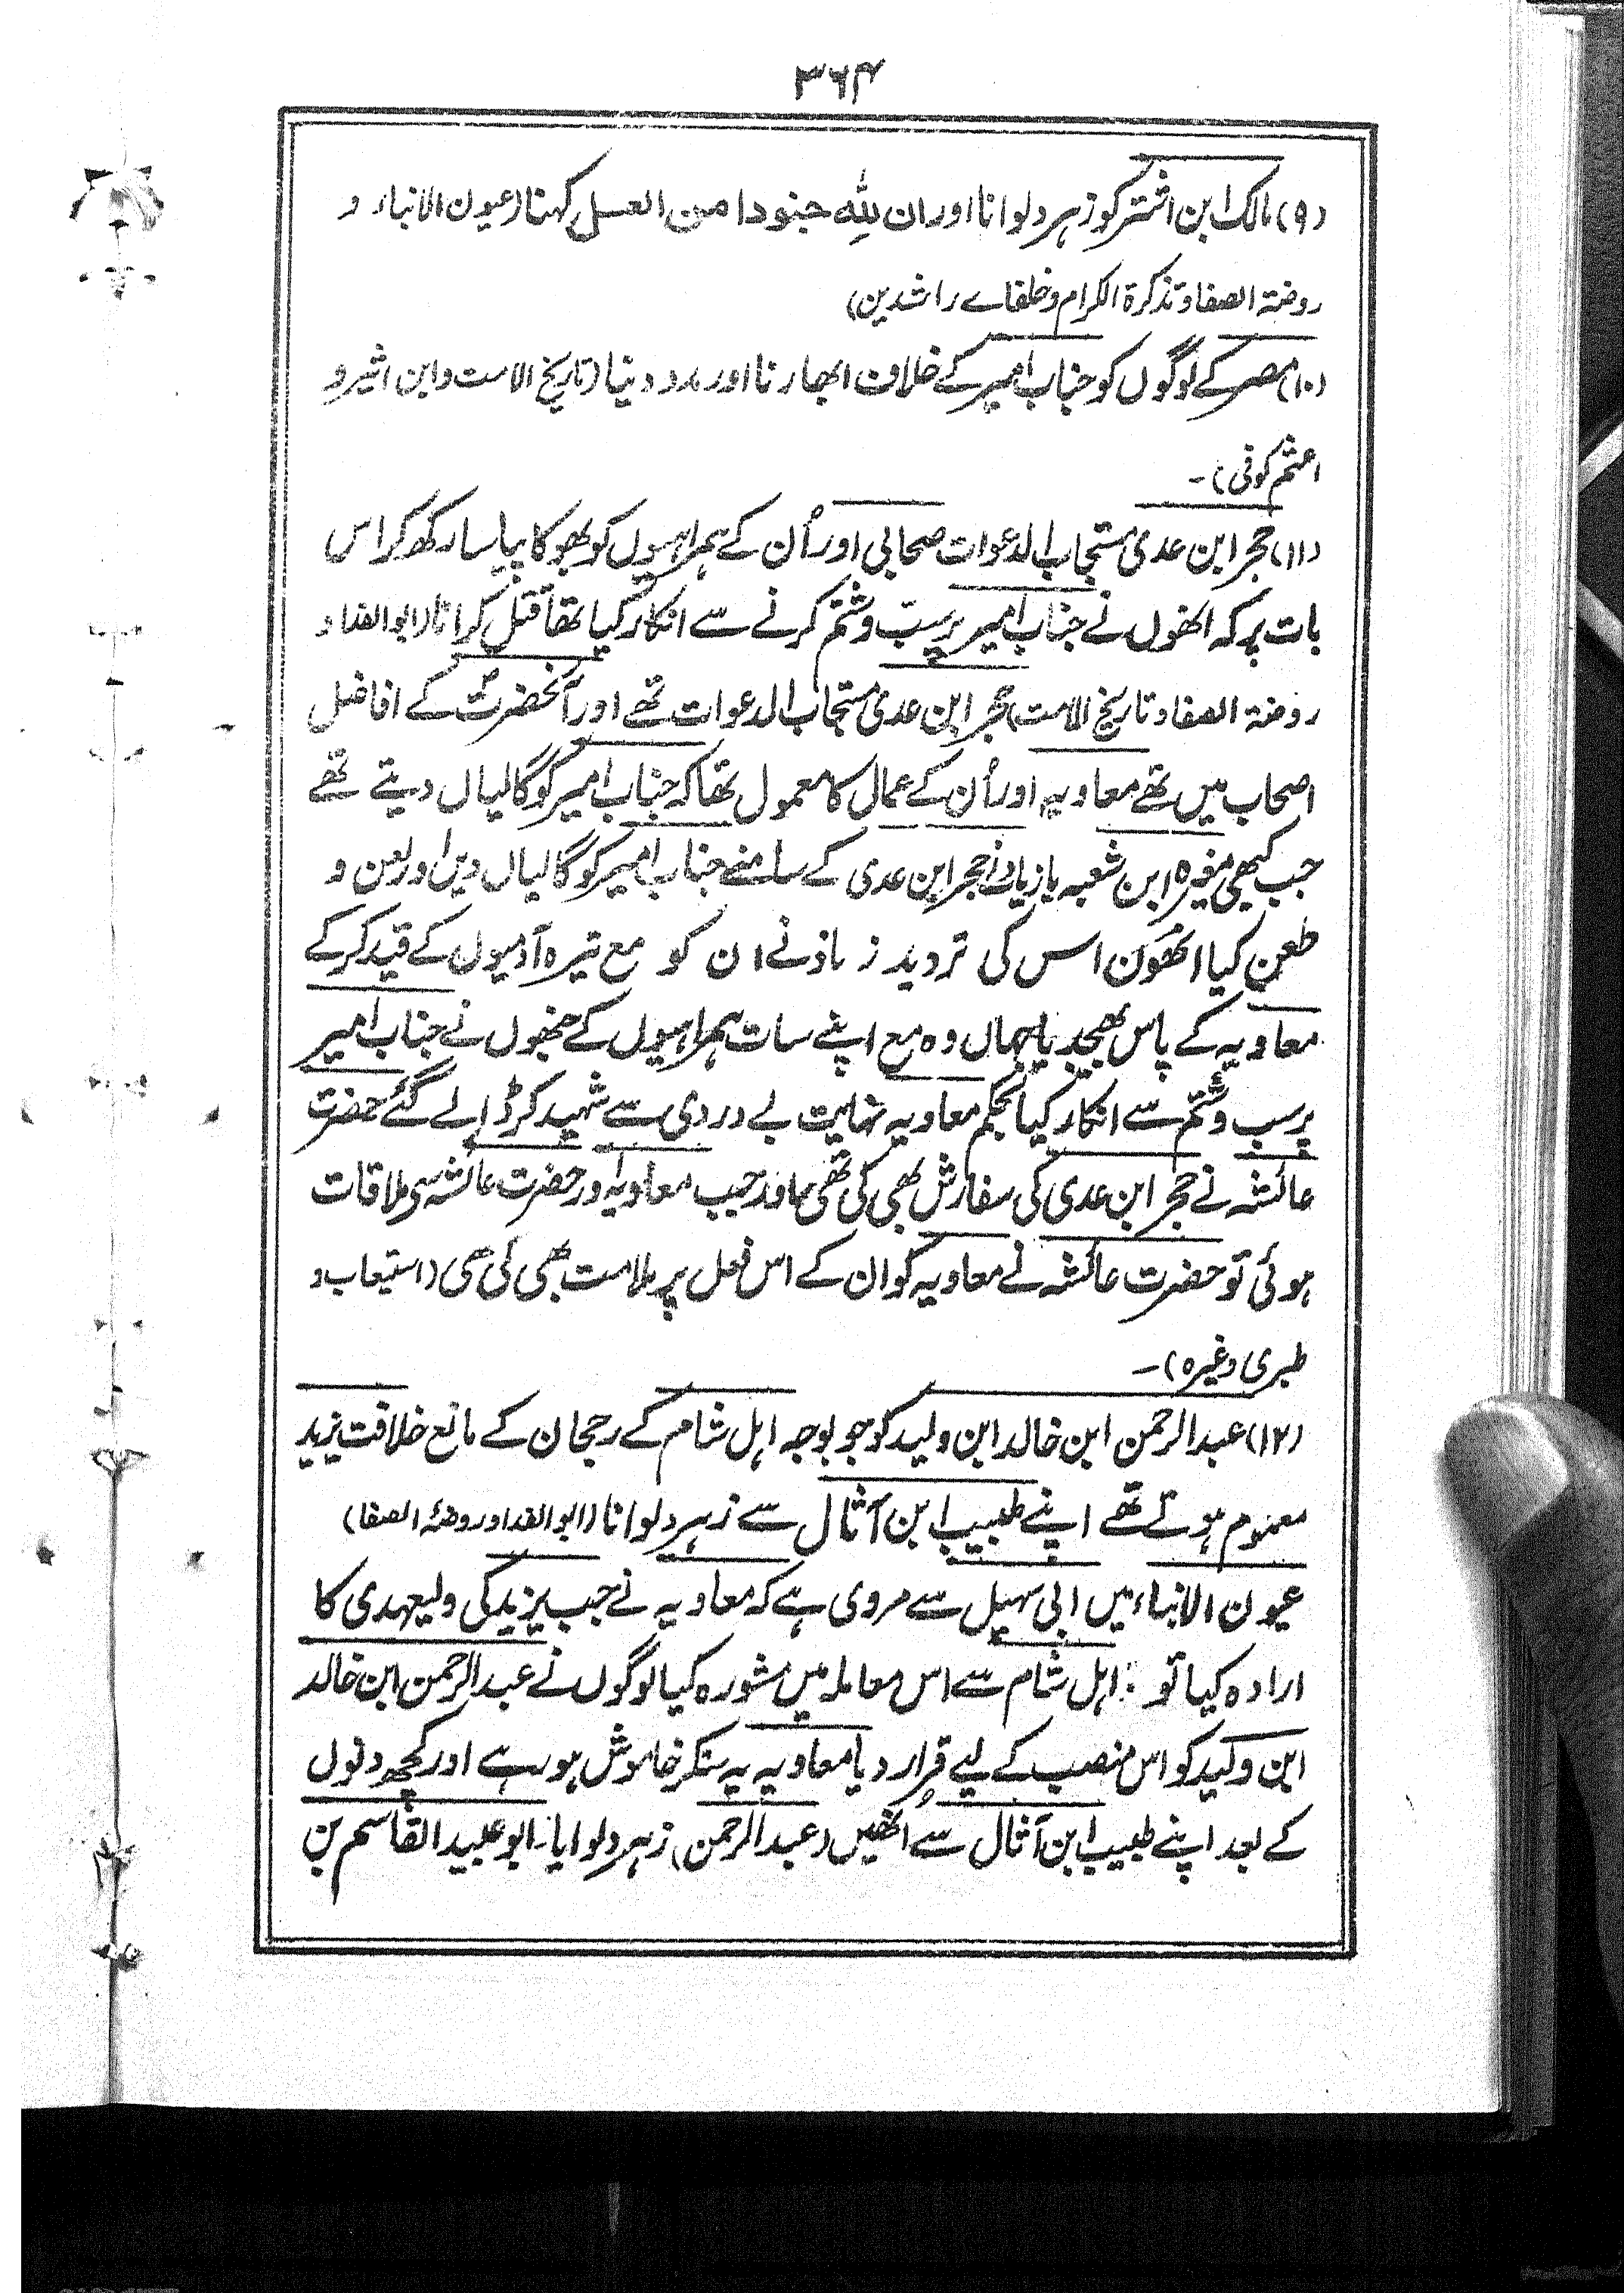 ۳۶۴
(۹) مالک ابن اشتر کو زہر دلوانا اور ان للہ جنودا من العسل کہنا (عیون الانباء و
روضۃ الصفا و تذکرۃ الکرام و خلفاے راشدین)
(۱۰) مصر کے لوگوں کو جناب امیر کے خلاف ابھارنا اور مدد دینا (تاریخ الامت و ابن اثیر و
اعثم کوفی)۔
(۱۱) حجر ابن عدی مستجاب الدعوات صحابی اور اُن کے ہمراہیوں کو بھوکا پیاسا رکھ کر اس
بات پر کہ انھوں نے جناب امیر پر سبّ و شتم کرنے سے انکار کیا تھا قتل کرانا (ابوالفدا و
روضۃ الصفا و تاریخ الامت) حجر ابن عدی مستجاب الدعوات تھے اور آنحضرتؐ کے افاضل
اصحاب میں تھے معاویہ اور اُن کے عمال کا معمول تھا کہ جناب امیر کو گالیاں دیتے تھے
جب کبھی مغیرہ ابن شعبہ یا زیاد نے حجر ابن عدی کے سامنے جناب امیر کو گالیاں دیں اور لعن و
طعن کیا انھوں اس کی تردید نے ان کو مع تیرہ آدمیوں کے قید کر کے
معاویہ کے پاس بھیجدیا جہاں وہ مع اپنے سات ہمراہیوں کے جنھوں نے جناب امیر
پر سب و شتم سے انکار کیا بحکم معاویہ نہایت بے دردی سے شہید کر ڈالے گئے حضرت
عائشہ نے حجر ابن عدی کی سفارش بھی کی تھی اور جب معاویہ اور حضرت عائشہ سی ملاقات
ہوئی تو حضرت عائشہ نے معاویہ کو ان کے اس فعل پر ملامت بھی کی تھی (استیعاب و
طبری وغیرہ)۔
(۱۲) عبدالرحمن ابن خالد ابن ولید کو جو بوجہ اہل شام کے رجحان کے مانع خلافت یزید
معلوم ہوتے تھے اپنے طبیب ابن آثال سے زہر دلوانا (ابوالفدا و روضۃ الصفا)
عیون الانباء میں ابی سہیل سے مروی ہے کہ معاویہ نے جب یزید کی ولیعہدی کا
ارادہ کیا تو اہل شام سے اس معاملہ میں مشورہ کیا لوگوں نے عبدالرحمن ابن خالد
ابن ولید کو اس منصب کے لیے قرار دیا معاویہ یہ سنکر خاموش ہو رہے اور کچھ دنوں
کے بعد اپنے طبیب ابن آثال سے اُنھیں (عبدالرحمن) زہر دلوایا۔ ابو عبید القاسم بن